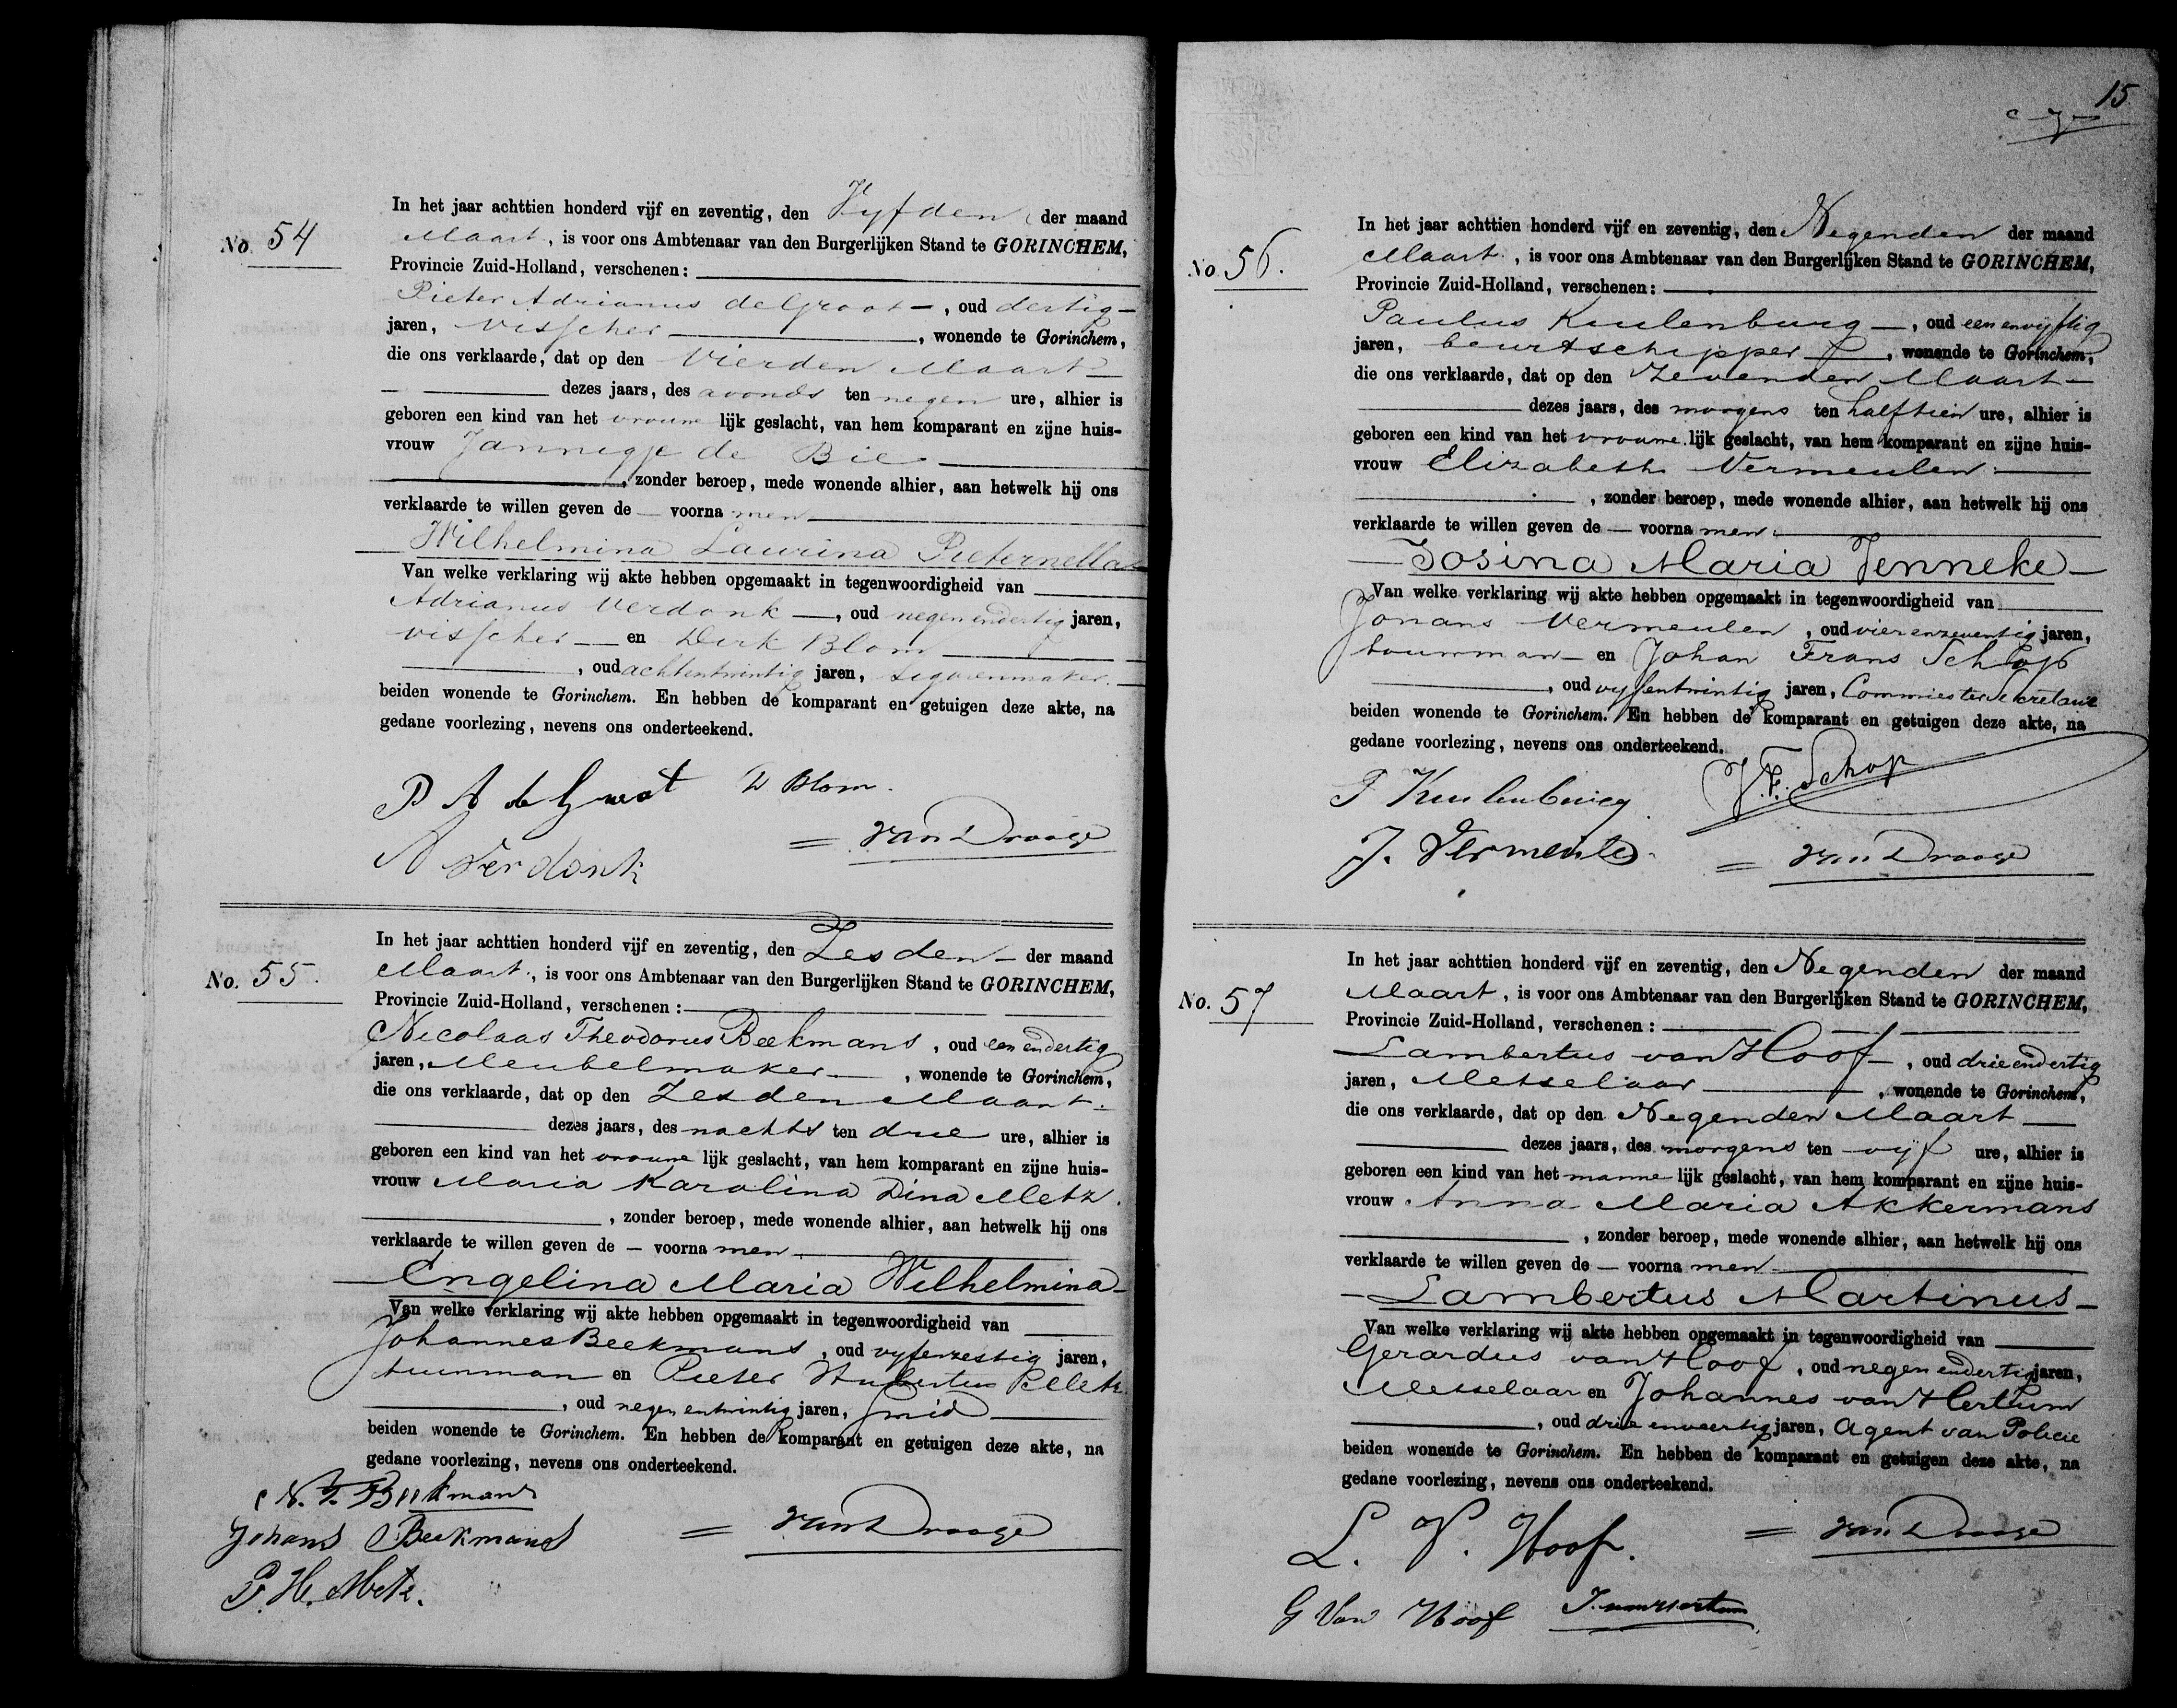 No. 54
In het jaar achttien honderd vijf en zeventig, den Vyfden der maand
Maart, is voor ons Ambtenaar van den Burgerlijken Stand te GORINCHEM,
Provincie Zuid-Holland, verschenen:
Pieter Adrianus de Groot, oud dertig
jaren, visscher, wonende te Gorinchem,
die ons verklaarde, dat op den Vierden Maart
dezes jaars, des avonds ten negen ure, alhier is
geboren een kind van het vrouwelijk geslacht, van hem komparant en zijne huis-
vrouw Jannigje de Bie
, zonder beroep, mede wonende alhier, aan hetwelk hij ons
verklaarde te willen geven de — voornamen
Wilhelmina Laurina Pieternella
Van welke verklaring wij akte hebben opgemaakt in tegenwoordigheid van
Adrianus Verdonk, oud negenendertig jaren,
visscher en Dirk Blom
, oud achtentwintig jaren, sigarenmaker.
beiden wonende te Gorinchem. En hebben de komparant en getuigen deze akte, na
gedane voorlezing, nevens ons onderteekend.
P A de Groot D Blom.
A Verdonk = van Drooge
No. 55.
In het jaar achttien honderd vijf en zeventig, den Zesden der maand
Maart, is voor ons Ambtenaar van den Burgerlijken Stand te GORINCHEM,
Provincie Zuid-Holland, verschenen:
Nicolaas Theodorus Beekmans, oud eenendertig
jaren, Meubelmaker, wonende te Gorinchem,
die ons verklaarde, dat op den Zesden Maart
dezes jaars, des nachts ten drie ure, alhier is
geboren een kind van het vrouwelijk geslacht, van hem komparant en zijne huis-
vrouw Maria Karolina Dina Metz.
, zonder beroep, mede wonende alhier, aan hetwelk hij ons
verklaarde te willen geven de — voornamen
Engelina Maria Wilhelmina
Van welke verklaring wij akte hebben opgemaakt in tegenwoordigheid van
Johannes Beekmans, oud vyfenzestig jaren,
tuinman en Pieter Hubertus Metz
, oud negenentwintig jaren, Smid
beiden wonende te Gorinchem. En hebben de komparant en getuigen deze akte, na
gedane voorlezing, nevens ons onderteekend.
N. T. Beekmans
Johans Beekmans = van Drooge
P. H. Metz.
15.
No. 56.
In het jaar achttien honderd vijf en zeventig, den Negenden der maand
Maart, is voor ons Ambtenaar van den Burgerlijken Stand te GORINCHEM,
Provincie Zuid-Holland, verschenen:
Paulus Kuilenburg, oud eenenvyftig
jaren, beurtschipper, wonende te Gorinchem,
die ons verklaarde, dat op den Zevenden Maart
dezes jaars, des morgens ten halftien ure, alhier is
geboren een kind van het vrouwelijk geslacht, van hem komparant en zijne huis-
vrouw Elizabeth Vermeulen
, zonder beroep, mede wonende alhier, aan hetwelk hij ons
verklaarde te willen geven de — voornamen
Josina Maria Jenneke
Van welke verklaring wij akte hebben opgemaakt in tegenwoordigheid van
Johans Vermeulen, oud vierenzeventig jaren,
bouwman en Johan Frans Schop
, oud vyfentwintig jaren, Commies ter Secretarie
beiden wonende te Gorinchem. En hebben de komparant en getuigen deze akte, na
gedane voorlezing, nevens ons onderteekend.
P Kuilenburg J. F. Schop
J. Vermeulen = van Drooge
No. 57
In het jaar achttien honderd vijf en zeventig, den Negenden der maand
Maart, is voor ons Ambtenaar van den Burgerlijken Stand te GORINCHEM,
Provincie Zuid-Holland, verschenen:
Lambertus van Hoof, oud drieendertig
jaren, Metselaar, wonende te Gorinchem,
die ons verklaarde, dat op den Negenden Maart
dezes jaars, des morgens ten vyf ure, alhier is
geboren een kind van het mannelijk geslacht, van hem komparant en zijne huis-
vrouw Anna Maria Akkermans
, zonder beroep, mede wonende alhier, aan hetwelk hij ons
verklaarde te willen geven de — voornamen
Lambertus Martinus
Van welke verklaring wij akte hebben opgemaakt in tegenwoordigheid van
Gerardus van Hoof, oud negenendertig jaren,
Metselaar en Johannes van Hertum
, oud drieenveertig jaren, Agent van Policie
beiden wonende te Gorinchem. En hebben de komparant en getuigen deze akte, na
gedane voorlezing, nevens ons onderteekend.
L. V. Hoof. = van Drooge
G Van Hoof J. van Hertum